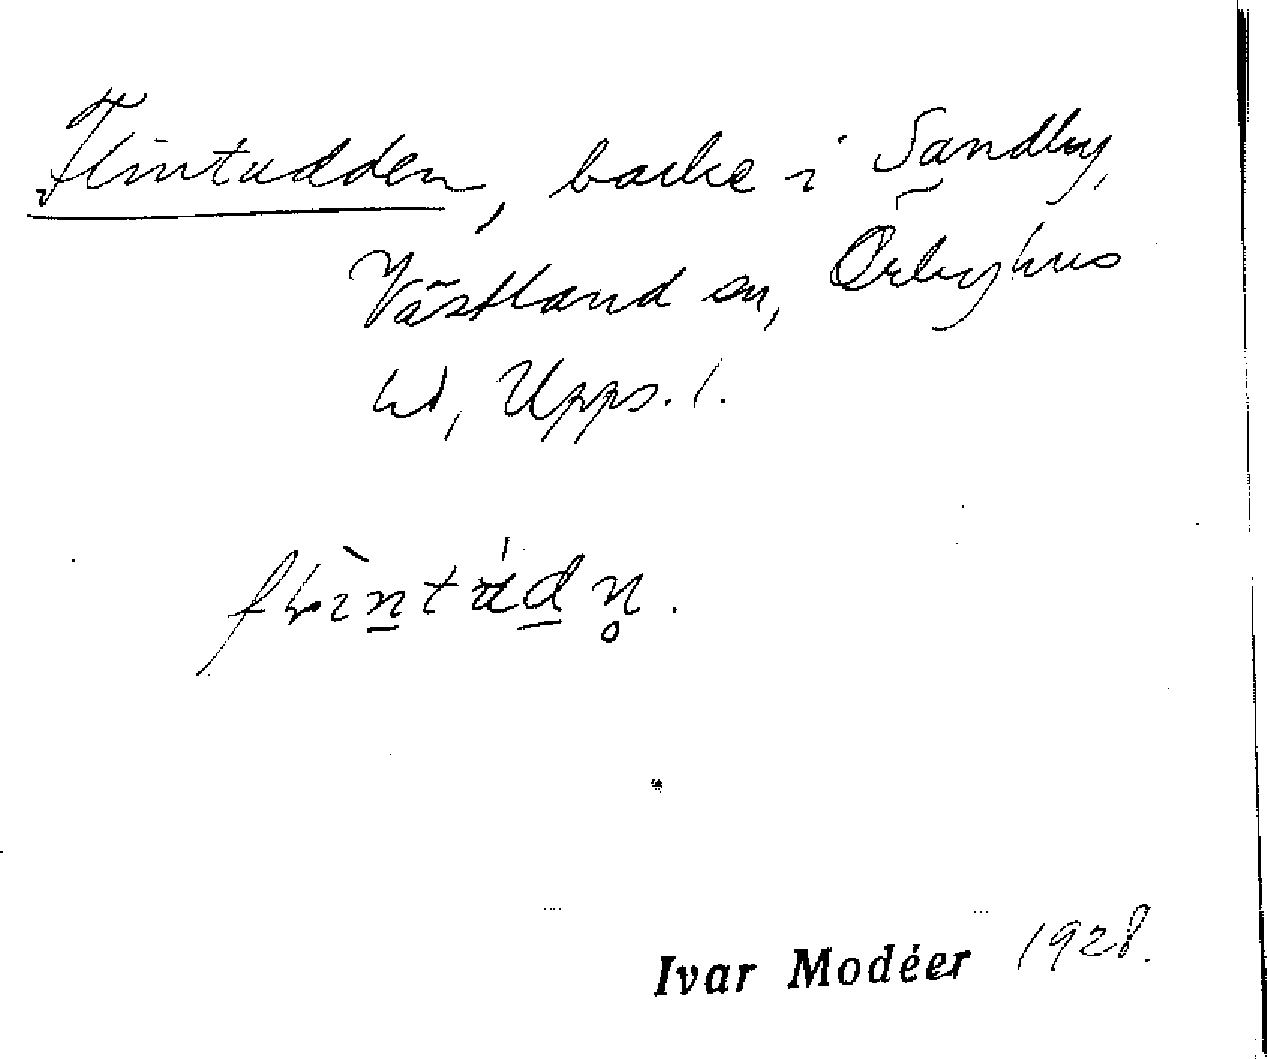 Flintudden, backe i Sandby,
Västland sn, Örbyhus
hd, Upps. l.
Ivar Modéer 1928.